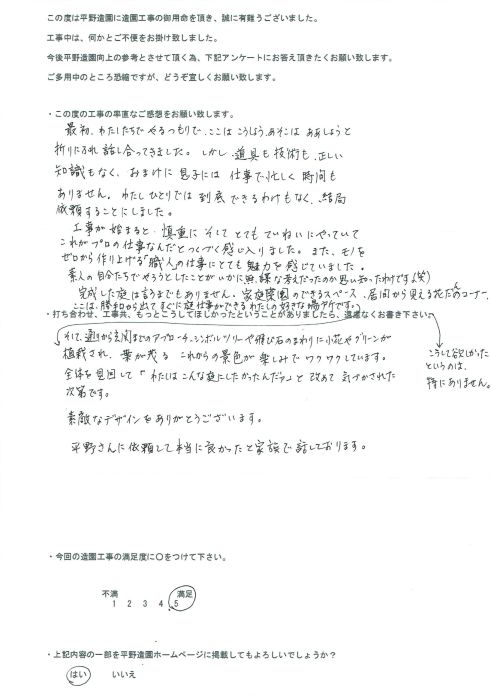 この度は平野造園に造園工事の御用命を頂き、誠に有難うございました。
工事中は、何かとご不便をお掛け致しました。
今後平野造園向上の参考とさせて頂く為、下記アンケートにお答え頂きたくお願い致します。
ご多用中のところ恐縮ですが、どうぞ宜しくお願い致します。
・この度の工事の率直なご感想をお願い致します。
最初、わたしたちでやるつもりで、ここはこうしよう、あそこはああしようと
折りにふれ話し合ってきました。しかし、道具も技術も、正しい
知識もなく、おまけに息子には仕事で忙しく時間も
ありません。わたしひとりでは到底できるわけもなく、結局
依頼することにしました。
工事が始まると、慎重に そして とてもていねいにやっていて
これがプロの仕事なんだとつくづく感じ入りました。また、モノを
ゼロから作り上げる「職人」の仕事にとても魅力を感じていました。
素人の自分たちでやろうとしたことがいかに無謀な考えだったのか思い知ったわけです(笑)
完成した庭は言うまでもありません。家庭菜園のできるスペース、居間から見える花だんのコーナー、
ここは、勝手口から出てすぐに庭仕事ができるわたしの好きな場所です。
・打ち合わせ、工事共、もっとこうしてほしかったということがありましたら、遠慮なくお書き下さい
そして、通りから玄関までのアプローチ、シンボルツリーや飛び石のまわりに小花やグリーンが
植栽され、葉が茂る これからの景色が楽しみでワクワクしています。
全体を見回して「わたしはこんな庭にしたかったんだっ」と改めて気づかされた
次第です。
素敵なデザインをありがとうございます。
平野さんに依頼して本当に良かったと家族で話しております。
こうして欲しかった
というのは、
特にありません。
・今回の造園工事の満足度に〇をつけて下さい。
不満 満足
1 2 3 4 5
・上記内容の一部を平野造園ホームページに掲載してもよろしいでしょうか？
はい いいえ